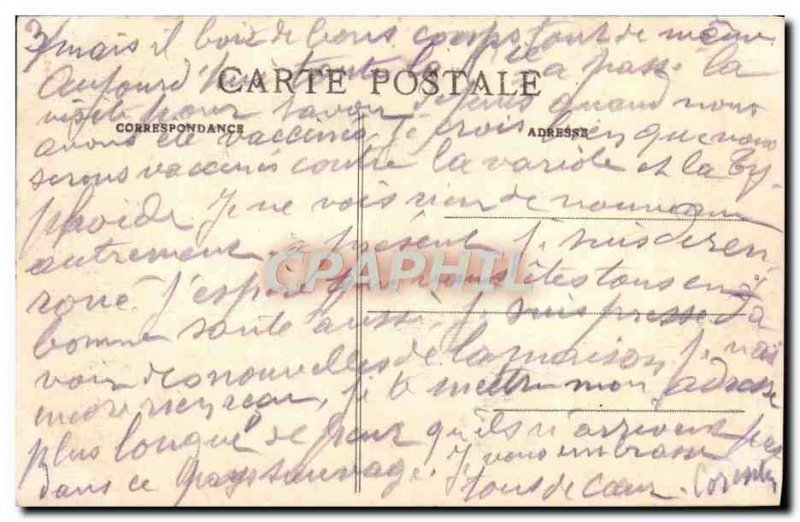 3/ mais il boit de bons coups tout de même
Aujourd'hui tout la a passé la
CARTE POSTALE
visite pour savoir depuis quand nous
CORRESPONDANCE
ADRESSE
avons été vaccinés. Je crois bien que nous
serons vaccinés contre la variole et la ty-
phoide. Je ne vois rien de nouveau
autrement à présent je suis
CPAPHIL
roué. J'espère que vous êtes tous en
bonne santé aussi. Je suis pressé d'a
voir des nouvelles de la maison, je n'ai
encore rien reçu, je te mettre mon adresse
plus longue de peur qu'ils n'arrivent pas
dans ce pays sauvage. Je vous embrasse
tous de cœur.